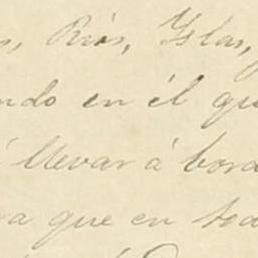 s, Riós, Yslas,
ndo en él qu
á llevar á bord
a que en tod